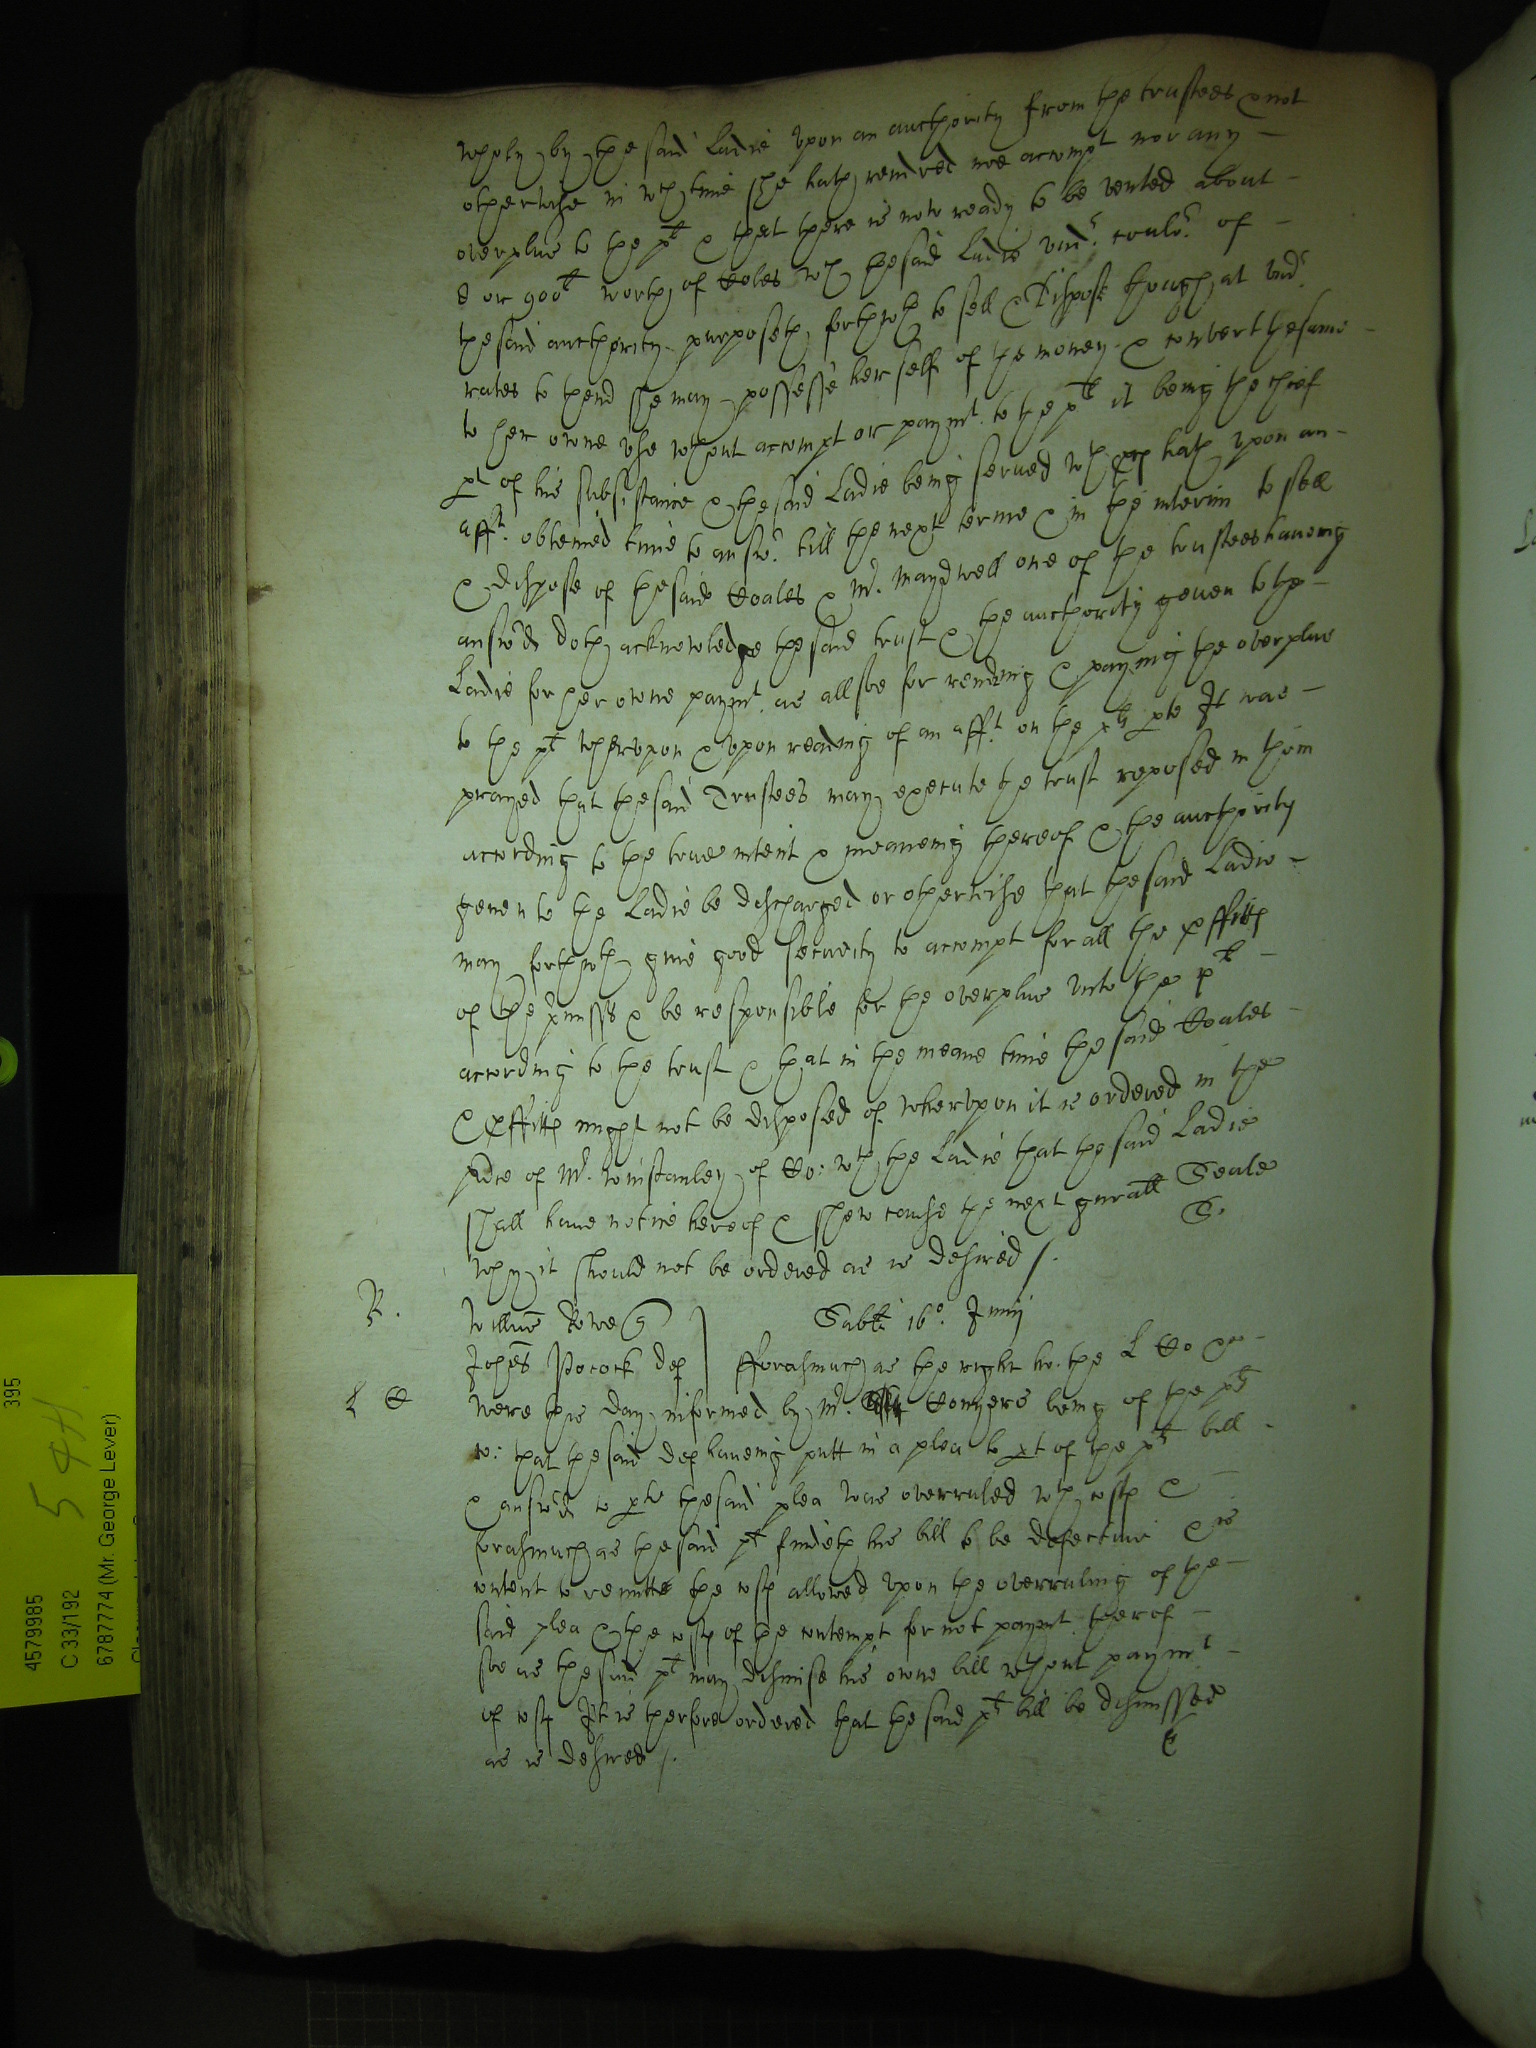 wholy by the said Ladie vpon an aucthority from the trustees & not
otherwise in wch time she hath rendred noe accompt nor any
overplus to the plt & that there is now ready to be vented about
8 or 900l worth of Coles wch the said Ladie vndr coulr of
the said aucthority purposeth forthwth to sell & dispose though at vndr
rates to thend she may possesse her self of the money & convert the same
to her owne vse wthout accompt or paymt to the plt it being the chief
pt of his subsistance & the said Ladie being served wth hath vpon an
afft obteined time to answr till the next terme & in the interim to sell
& dispose of the said Coales & Mr Maydwell one of the trustees haueing
answrd doth acknowledge the said trust & the aucthority geuen to the
Ladie for her owne paymt as allsoe for rendring & paying the overplus
to the plt Whervpon & vpon reading of an afft on the plts pte It was
prayed that the said Trustees may execute the trust reposed in them
according to the true intent & meaneing thereof & the aucthority
geuen to the Ladie be discharged or otherwise that the said Ladie
may forthwth giue good security to accompt for all the pffitts
of the pmisses & be responsible for the overplus vnto the plt
according to the trust & that in the meane time the said Coales
& pffitts might not be disposed of Whervpon it is ordered in the
pnce of Mr Winstanley of Co: wth the Ladie that the said Ladie
shall haue notice hereof & shew cause the next gnrall Seale
why it should not be ordered as is desired /.
S.
R.
Willus Rowe q
Sabti 16o Junij
Johes Pocock def
fforasmuch as the right ho. the L Co
L C
were this day informed by Mr Conyers being of the plts
co: that the said def haueing putt in a plea to pt of the plts bill
& answrd to pte the said plea was overruled wth costs &
forasmuch as the said plt findeth his bill to be defective & is
content to remitte the costs allowed vpon the overruling of the
said plea & the costs of the contempt for not paymt therof
soe as the said plt may dismise his owne bill wthout paymt
of costs It is therfore ordered that the said plts bill be dismissed
as is desired /.
395
54H
4579985
C 33/192
6787774 (Mr. George Lever)